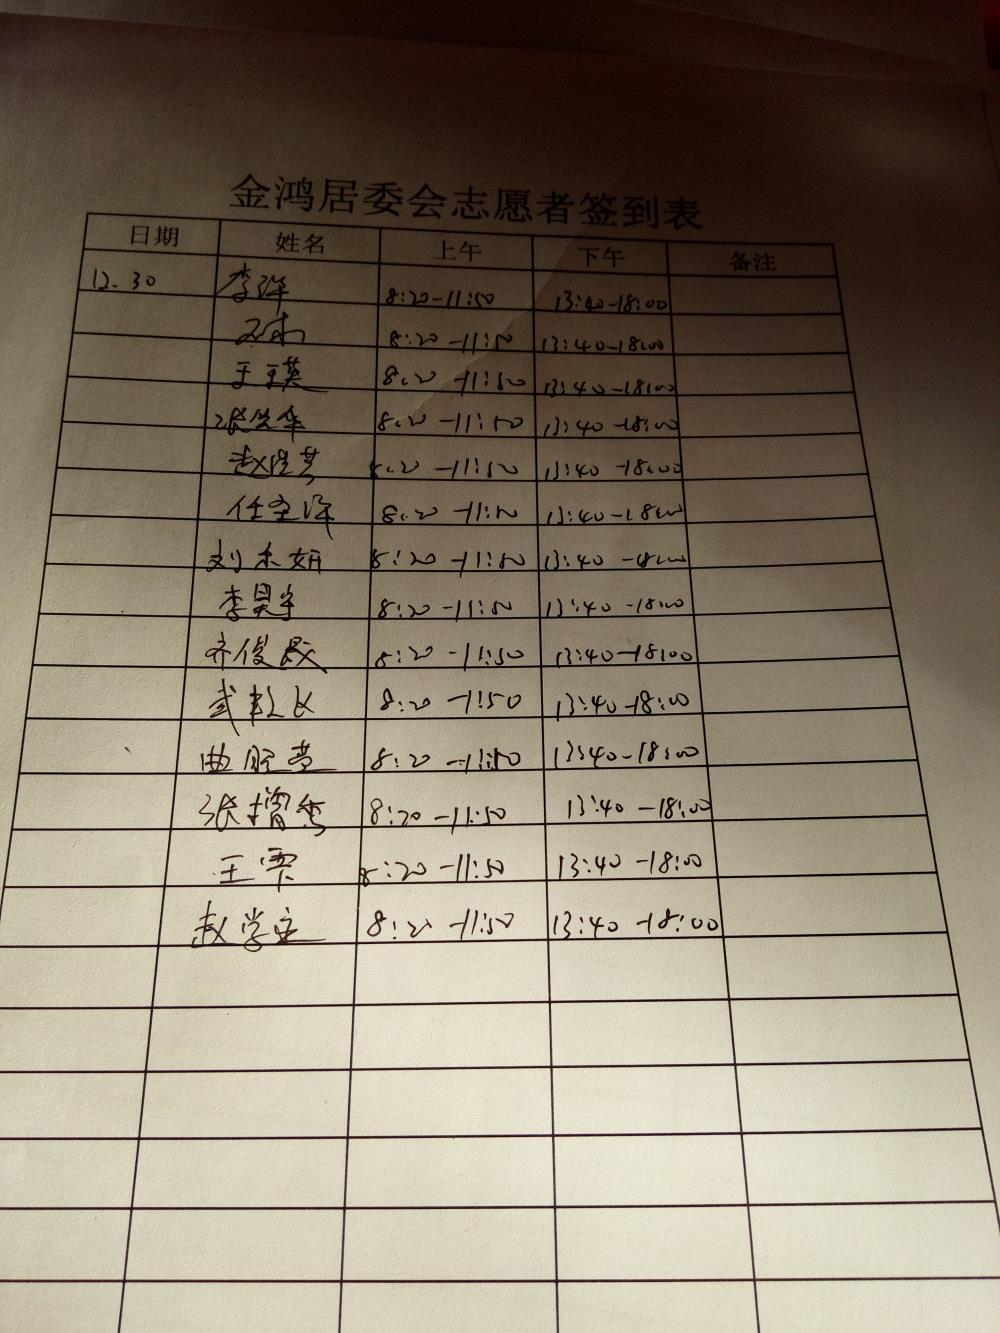 金鸿居委会志愿者签到表
日期 姓名 上午 下午 备注
12.30 李洋 8:20-11:50 13:40-18:00
8:20-11:50 13:40-18:00
于玉英 8:20-11:50 13:40-18:00
8:20-11:50 13:40-18:00
8:20-11:50 13:40-18:00
8:20-11:50 13:40-18:00
8:20-11:50 13:40-18:00
李昊宇 8:20-11:50 13:40-18:00
齐俊毅 8:20-11:50 13:40-18:00
8:20-11:50 13:40-18:00
8:20-11:50 13:40-18:00
张增秀 8:20-11:50 13:40-18:00
王雲 8:20-11:50 13:40-18:00
赵学宝 8:20-11:50 13:40-18:00